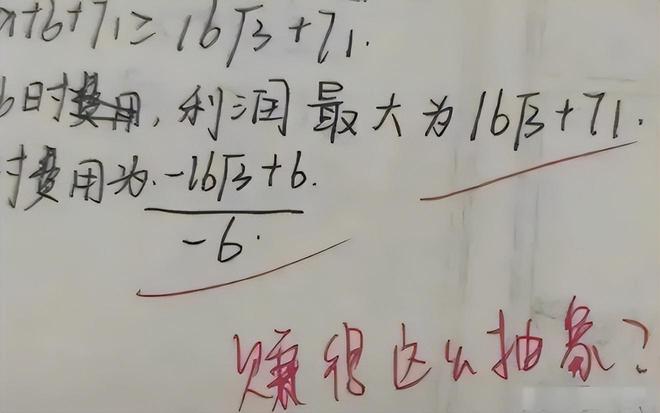 x+6+71≥16√3+71.
6时费用,利润最大为16√3+71.
时费用为.-16√3+6.
-6.
赚得这么抽象?